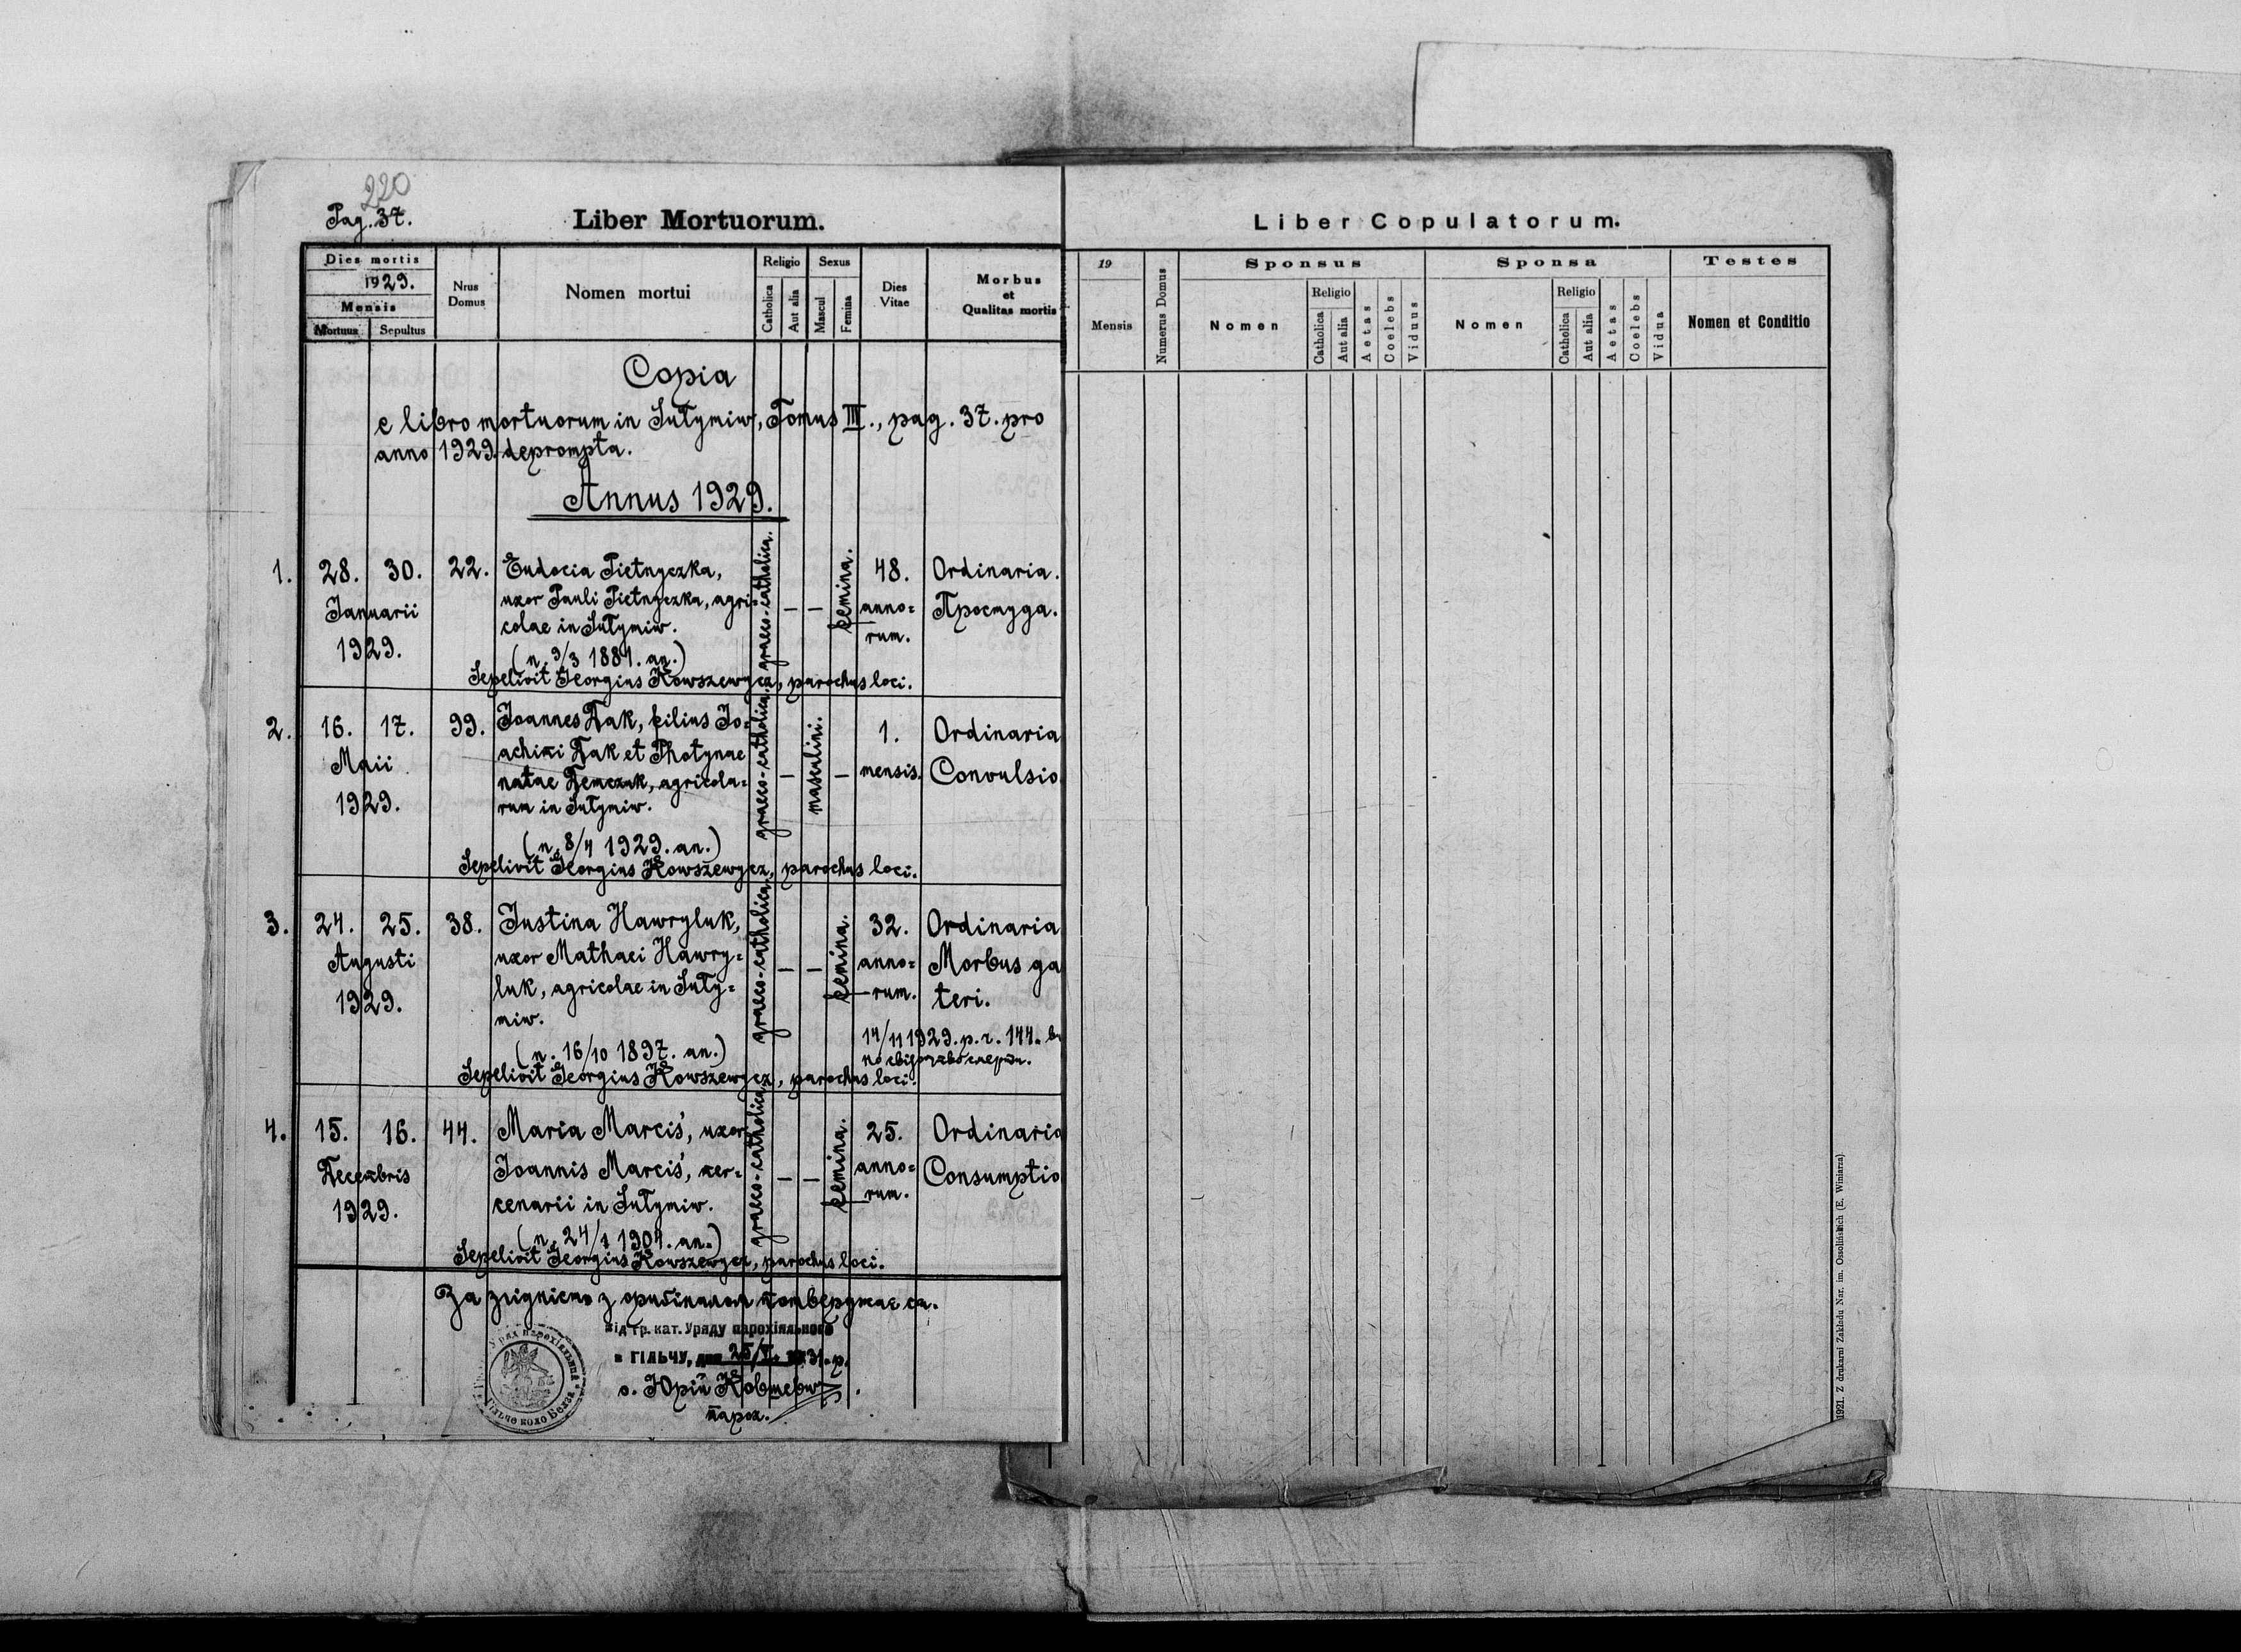 220
Pag. 37.
Liber Mortuorum.
Dies mortis
1929.
Mensis
Mortuus
Sepultus
Nrus
Domus
Nomen mortui
Religio
Catholica
Aut alia
Sexus
Mascul
Femina
Dies
Vitae
Morbus
et
Qualitas mortis
Copia
e libro mortuorum in Sułymiw, Tomus III., pag. 37. pro
anno 1929. deprompta.
Annus 1929.
1. 28. 30. 22. Eudocia Pietnyczka,
uxor Pauli Pietnyczka, agri=
colae in Sułymiw.
(n. 9/3 1881. an.)
Januarii
1929.
graeco-catholica.
— —
femina.
48.
anno=
rum.
Ordinaria.
Простуда.
Sepelivit Georgius Kowszewycz, parochus loci.
2. 16. 17. 99. Joannes Dak, filius Jo=
achimi Dak et Photynae
natae Demczuk, agricola=
rum in Sułymiw.
(n. 8/4 1929. an.)
Maii
1929.
graeco-catholica.
—
masculini.
—
1.
mensis.
Ordinaria
Convulsio
Sepelivit Georgius Kowszewycz, parochus loci.
3. 24. 25. 38. Justina Hawryluk,
uxor Mathaei Hawry=
luk, agricolae in Suły=
miw.
(n. 16/10 1897. an.)
Augusti
1929.
graeco-catholica.
— —
femina.
32.
anno=
rum.
Ordinaria
Morbus ga
teri.
14/11 1929. p. r. 144.
Sepelivit Georgius Kowszewycz, parochus loci.
4. 15. 16. 44. Maria Marciś, uxor
Joannis Marciś, mer=
cenarii in Sułymiw.
(n. 24/1 1904. an.)
Decembris
1929.
graeco-catholica
— —
femina.
25.
anno=
rum.
Ordinaria
Consumptio
Sepelivit Georgius Kowszewycz, parochus loci.
За згідність з оригіналом потверджає ся.
Від гр. кат. Уряду парохіяльного
в ГІЛЬЧУ, дня 25/V. 1931. р.
о. Юрій Ковшевич
парох.
Liber Copulatorum.
19
Mensis
Numerus Domus
Sponsus
Nomen
Religio
Catholica
Aut alia
Aetas
Coelebs
Viduus
Sponsa
Nomen
Religio
Catholica
Aut alia
Aetas
Coelebs
Vidua
Testes
Nomen et Conditio
1921. Z drukarni Zakładu Nar. im. Ossolińskich (E. Winiarza)